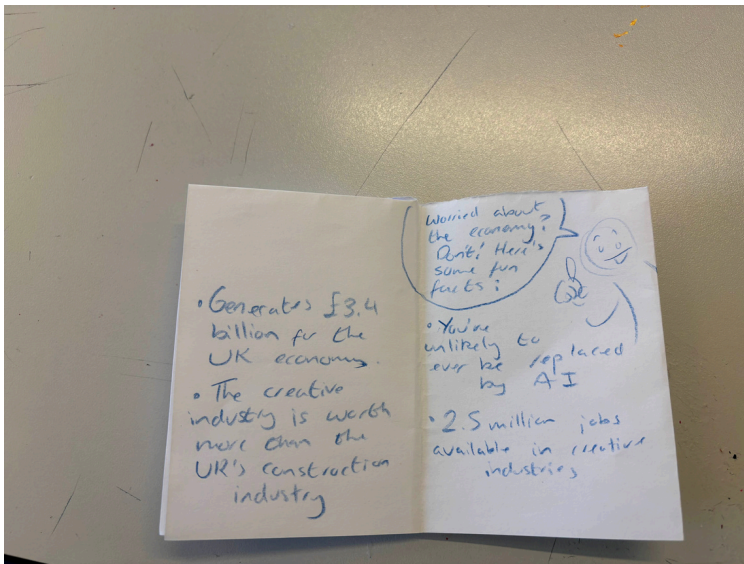 • Generates £3.4
billion for the
UK economy.
• The creative
industry is worth
more than the
UK's construction
industry
Worried about
the economy?
Don't! Here's
some fun
facts:
• You're
unlikely to
ever be replaced
by AI
• 2.5 million jobs
available in creative
industries